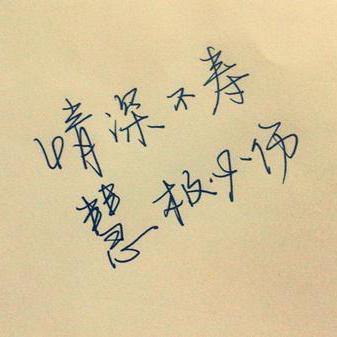 情深不寿
慧极必伤